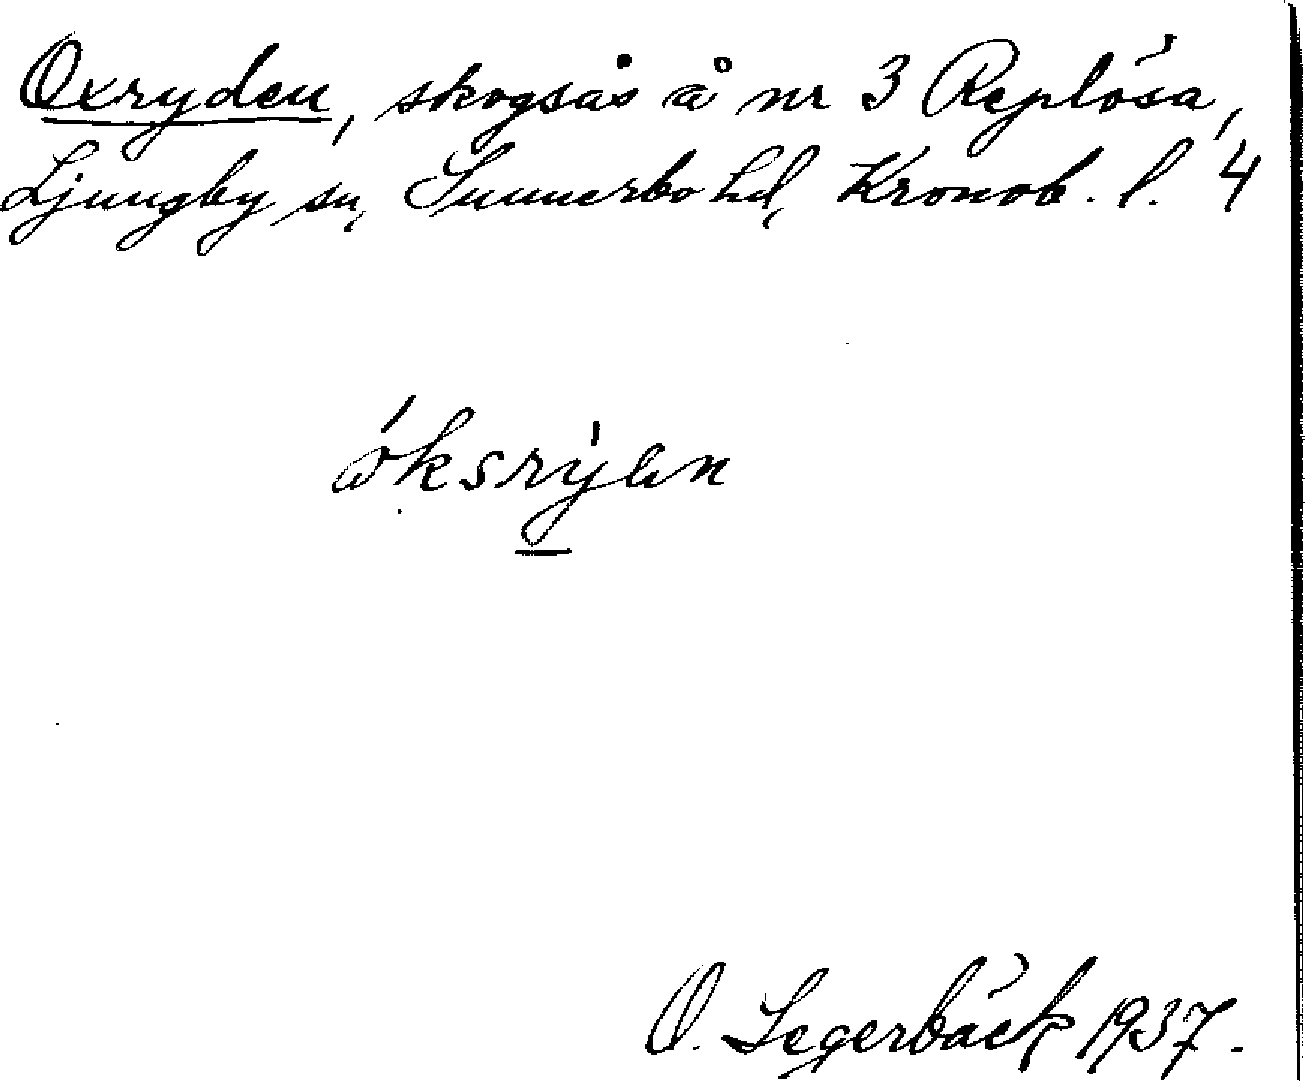 Oxryden, skogsås å nr 3 Replösa,
Ljungby sn, Sunnerbo hd, Kronob. l. 4
óksrýen
O. Segerbäck 1937.